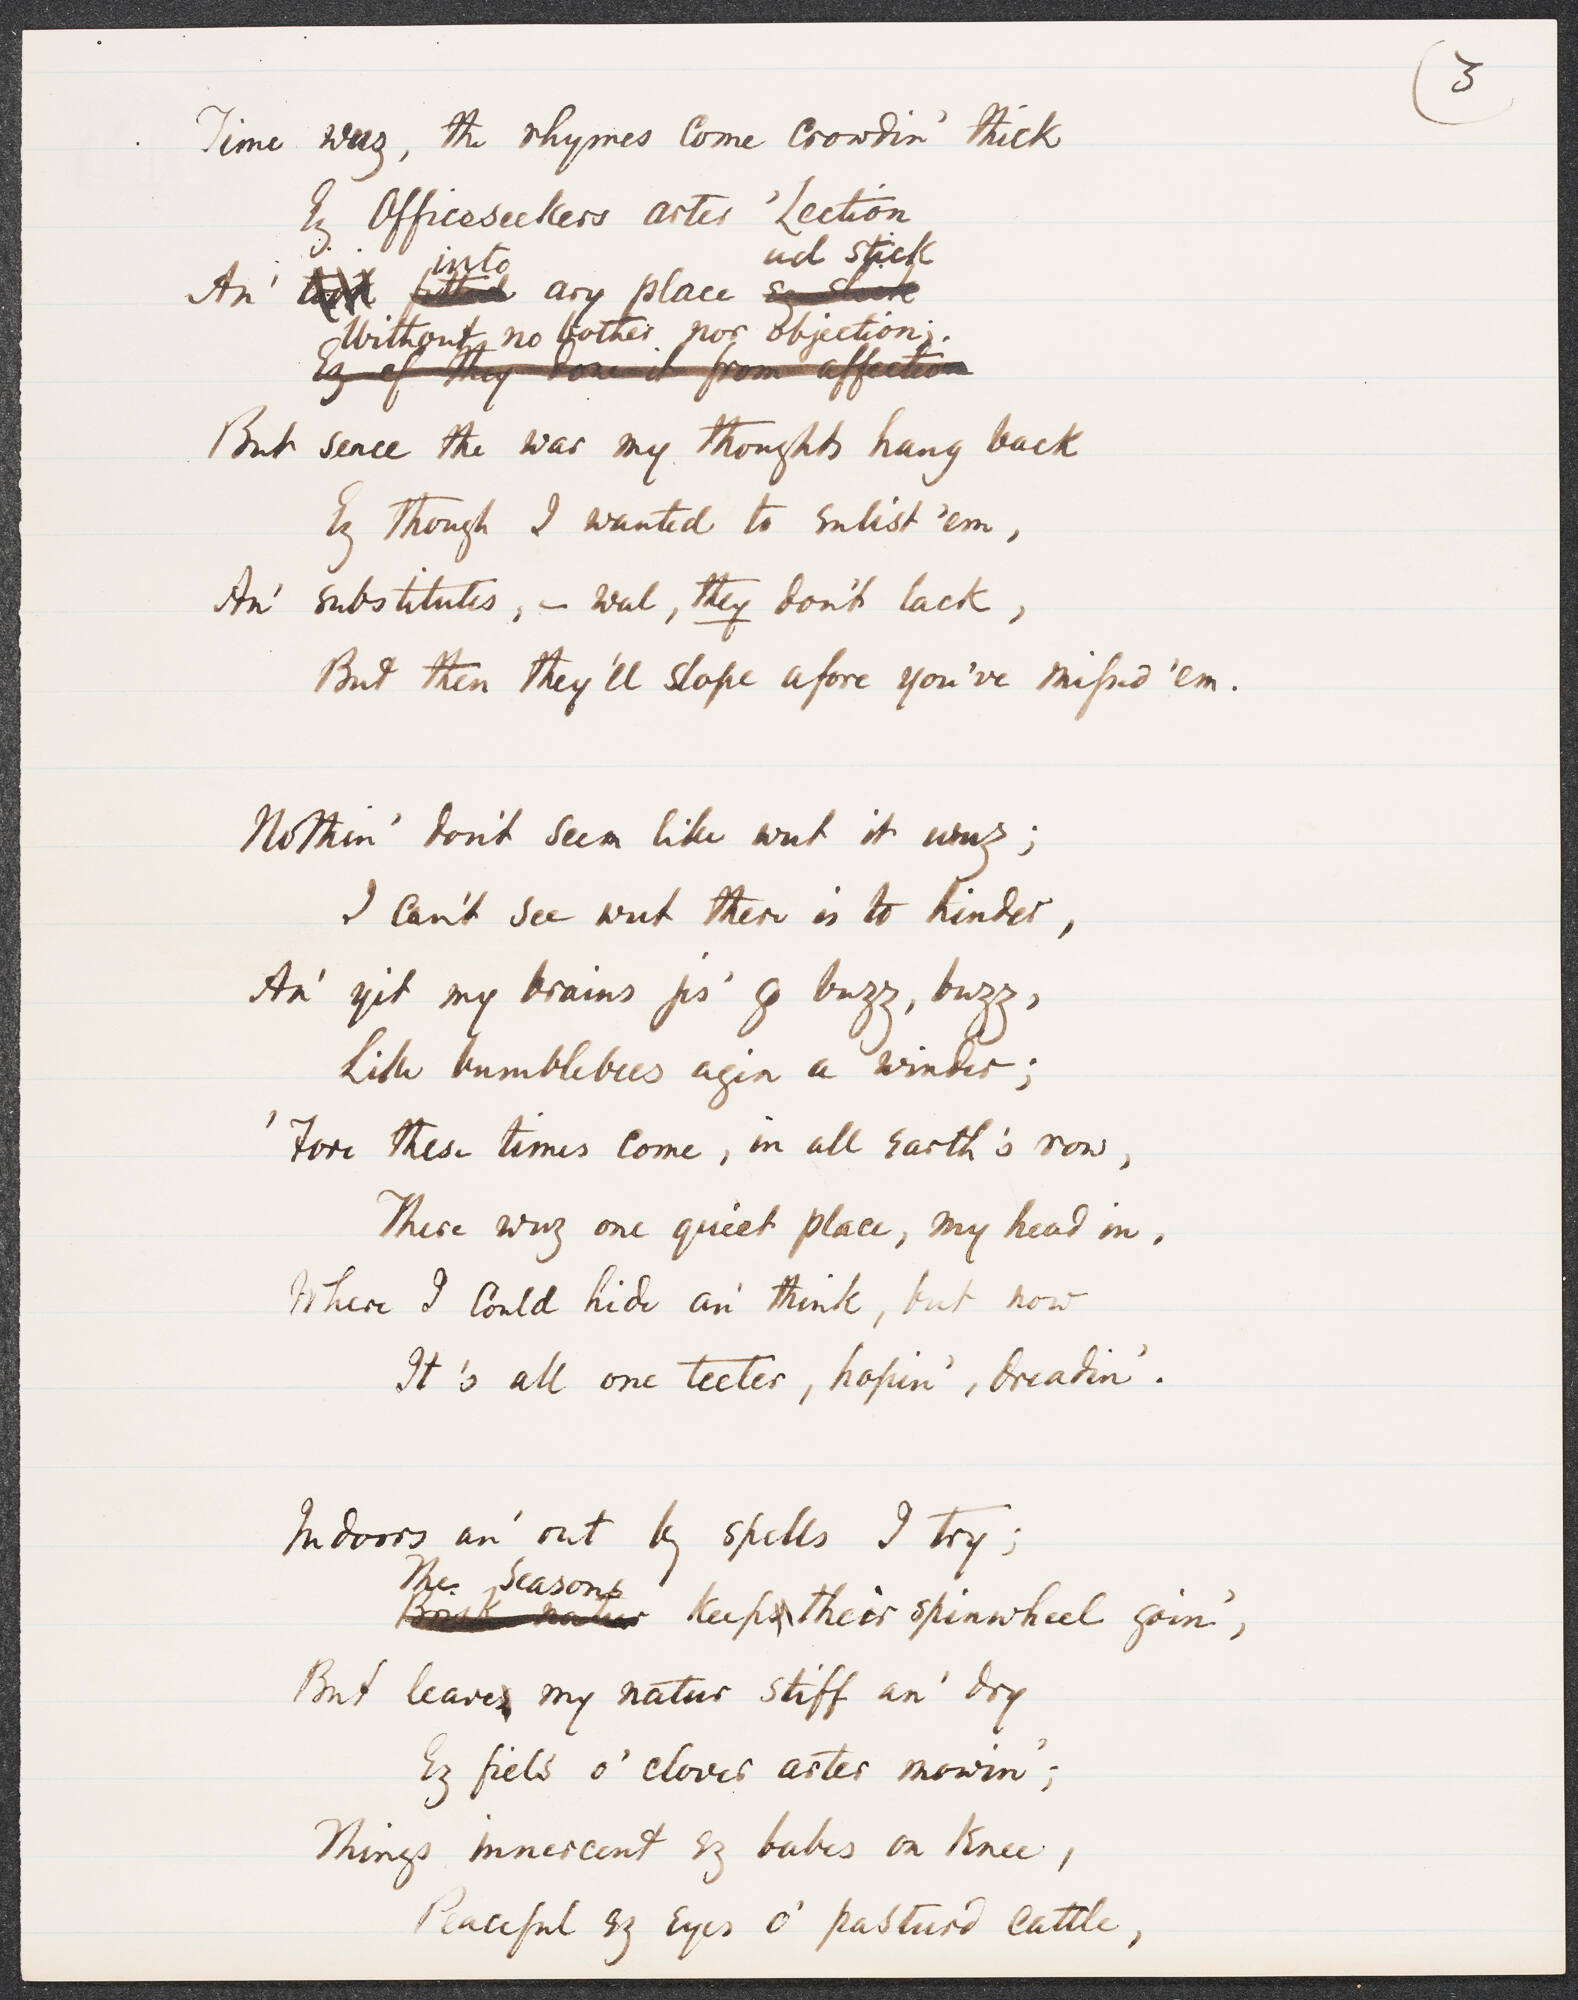 (3
Time wuz, the rhymes come crowdin' thick
Ez Officeseekers arter 'Lection
into ud stick
An' fitted ary place ez slick
Without no bother nor objection;.
Ez ef they done it from affection
But sence the war my thoughts hang back
Ez though I wanted to enlist 'em,
An' substitutes, – wal, they don't lack,
But then they'll slope afore you've missed 'em.
Nothin' don't seem like wut it wuz;
I can't see wut there is to hinder,
An' yit my brains jis' go buzz, buzz,
Like bumblebees agin a winder;
'Fore these times come, in all Earth's row,
There wuz one quiet place, my head in,
Where I could hide an' think, but now
It's all one teeter, hopin', dreadin'.
Indoors an' out by spells I try;
The seasons
Brisk natur keeps their spinwheel goin',
But leaves my natur stiff an' dry
Ez fiel's o' clover arter mowin';
Things innercent ez babes on knee,
Peaceful ez eyes o' pastur'd cattle,